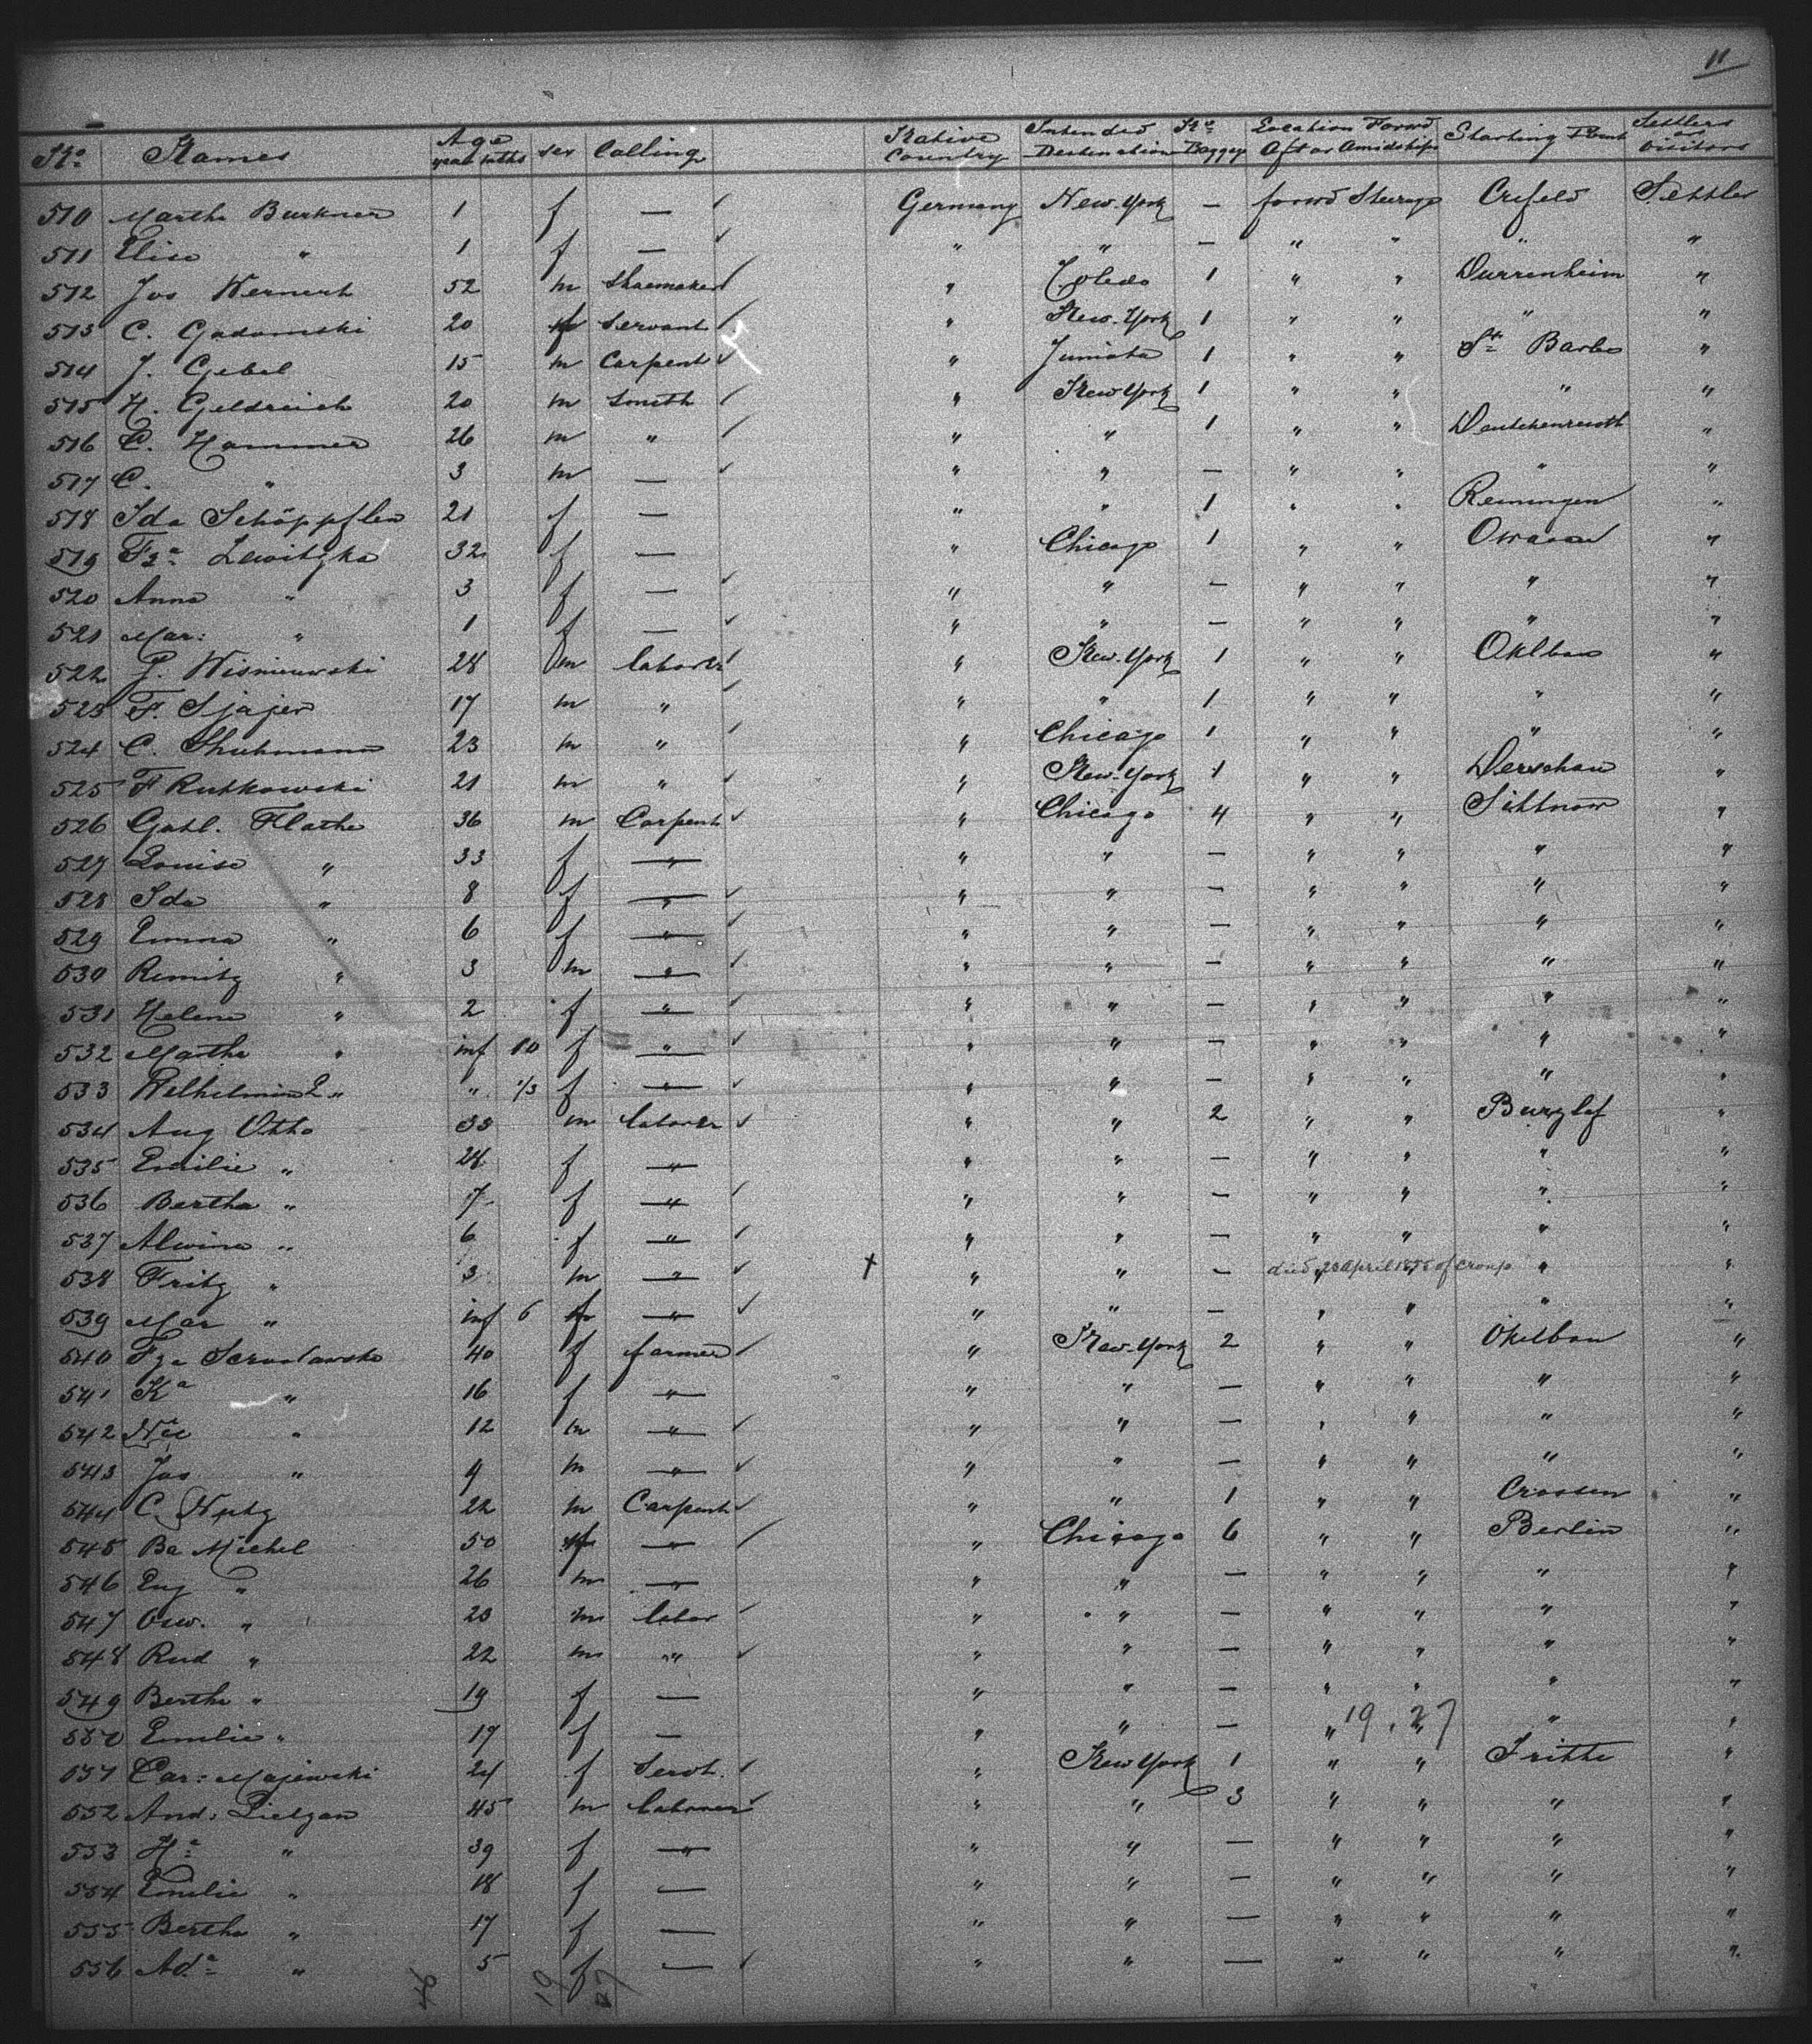 11
No. Names Age years mths sex Calling Native Country Intended Destination No. Baggage Location Forwd Aft or Amidships Starting Point Settlers or Visitors
510 Martha Burkner 1 f — Germany New-York — forwd Steerage Crefeld Settler
511 Elise " 1 f — " " — " " " "
512 Jos Wernert 52 m Shoemaker " Toledo 1 " " Durrenheim "
513 C. Gadomski 20 f Servant " New-York 1 " " " "
514 J. Gebel 15 m Carpent " Juniata 1 " " St Barbe "
515 H. Geldreich 20 m Smith " New York 1 " " " "
516 C. Hammer 26 m " " " 1 " " "
517 C. " 3 m — " " — " " " "
518 Ida Schöppflen 21 f — " " 1 " " Reiningen "
519 Fza Lewitzka 32 f — " Chicago 1 " " "
520 Anna " 3 f — " " — " " " "
521 Mar: " 1 f — " " — " " " "
522 J. Wisniewski 28 m laborer " New-York 1 " " "
523 F. Sjajer 17 m " " " 1 " " " "
524 C. Thuhmann 23 m " " Chicago 1 " " " "
525 F Rutkowski 21 m " " New-York 1 " " Derschau "
526 Gotl. Flathe 36 m Carpent " Chicago 4 " " Sittnow "
527 Louise " 33 f " " " — " " " "
528 Ida " 8 f " " " — " " " "
529 Emma " 6 f " " " — " " " "
530 Remitz " 3 m " " " — " " " "
531 Helene " 2 f " " " — " " " "
532 Martha " inf 10 f " " " — " " " "
533 " " 1/3 f " " " — " " " "
534 Aug Otto 33 m laborer " " 2 " " "
535 Emilie " 28 f " " " — " " " "
536 Bertha " 7 f " " " — " " " "
537 Alwine " 6 f " " " — " " " "
538 Fritz " 3 m " † " " — " " died 28 April 1885 of croup " "
539 Mar " inf 6 " " " — " " " "
540 Fza 40 f farmer " New-York 2 " " "
541 Ka " 16 f " " " — " " " "
542 Nic " 12 m " " " — " " " "
543 Jos " 9 m " " " — " " " "
544 C. 22 m Carpent " " 1 " " Crossen "
545 Ba Michel 50 f " " Chicago 6 " " Berlin "
546 Eug " 26 m " " " — " " " "
547 Osw. " 23 m labor " " — " " " "
548 Rud " 22 m " " " — " " " "
549 Bertha " 19 f — " " — " " " "
550 Emilie " 17 f — " " — " " " "
19.27
551 Car: Majewski 24 f Servt. " New York 1 " " Tritte "
552 And: Pielgan 45 m laborer " " 3 " " " "
553 Ha " 39 f " " " — " " " "
554 Emilie " 18 f — " " — " " " "
555 Bertha " 17 f — " " — " " " "
556 Ada " 5 f — " " — " " " "
19 27